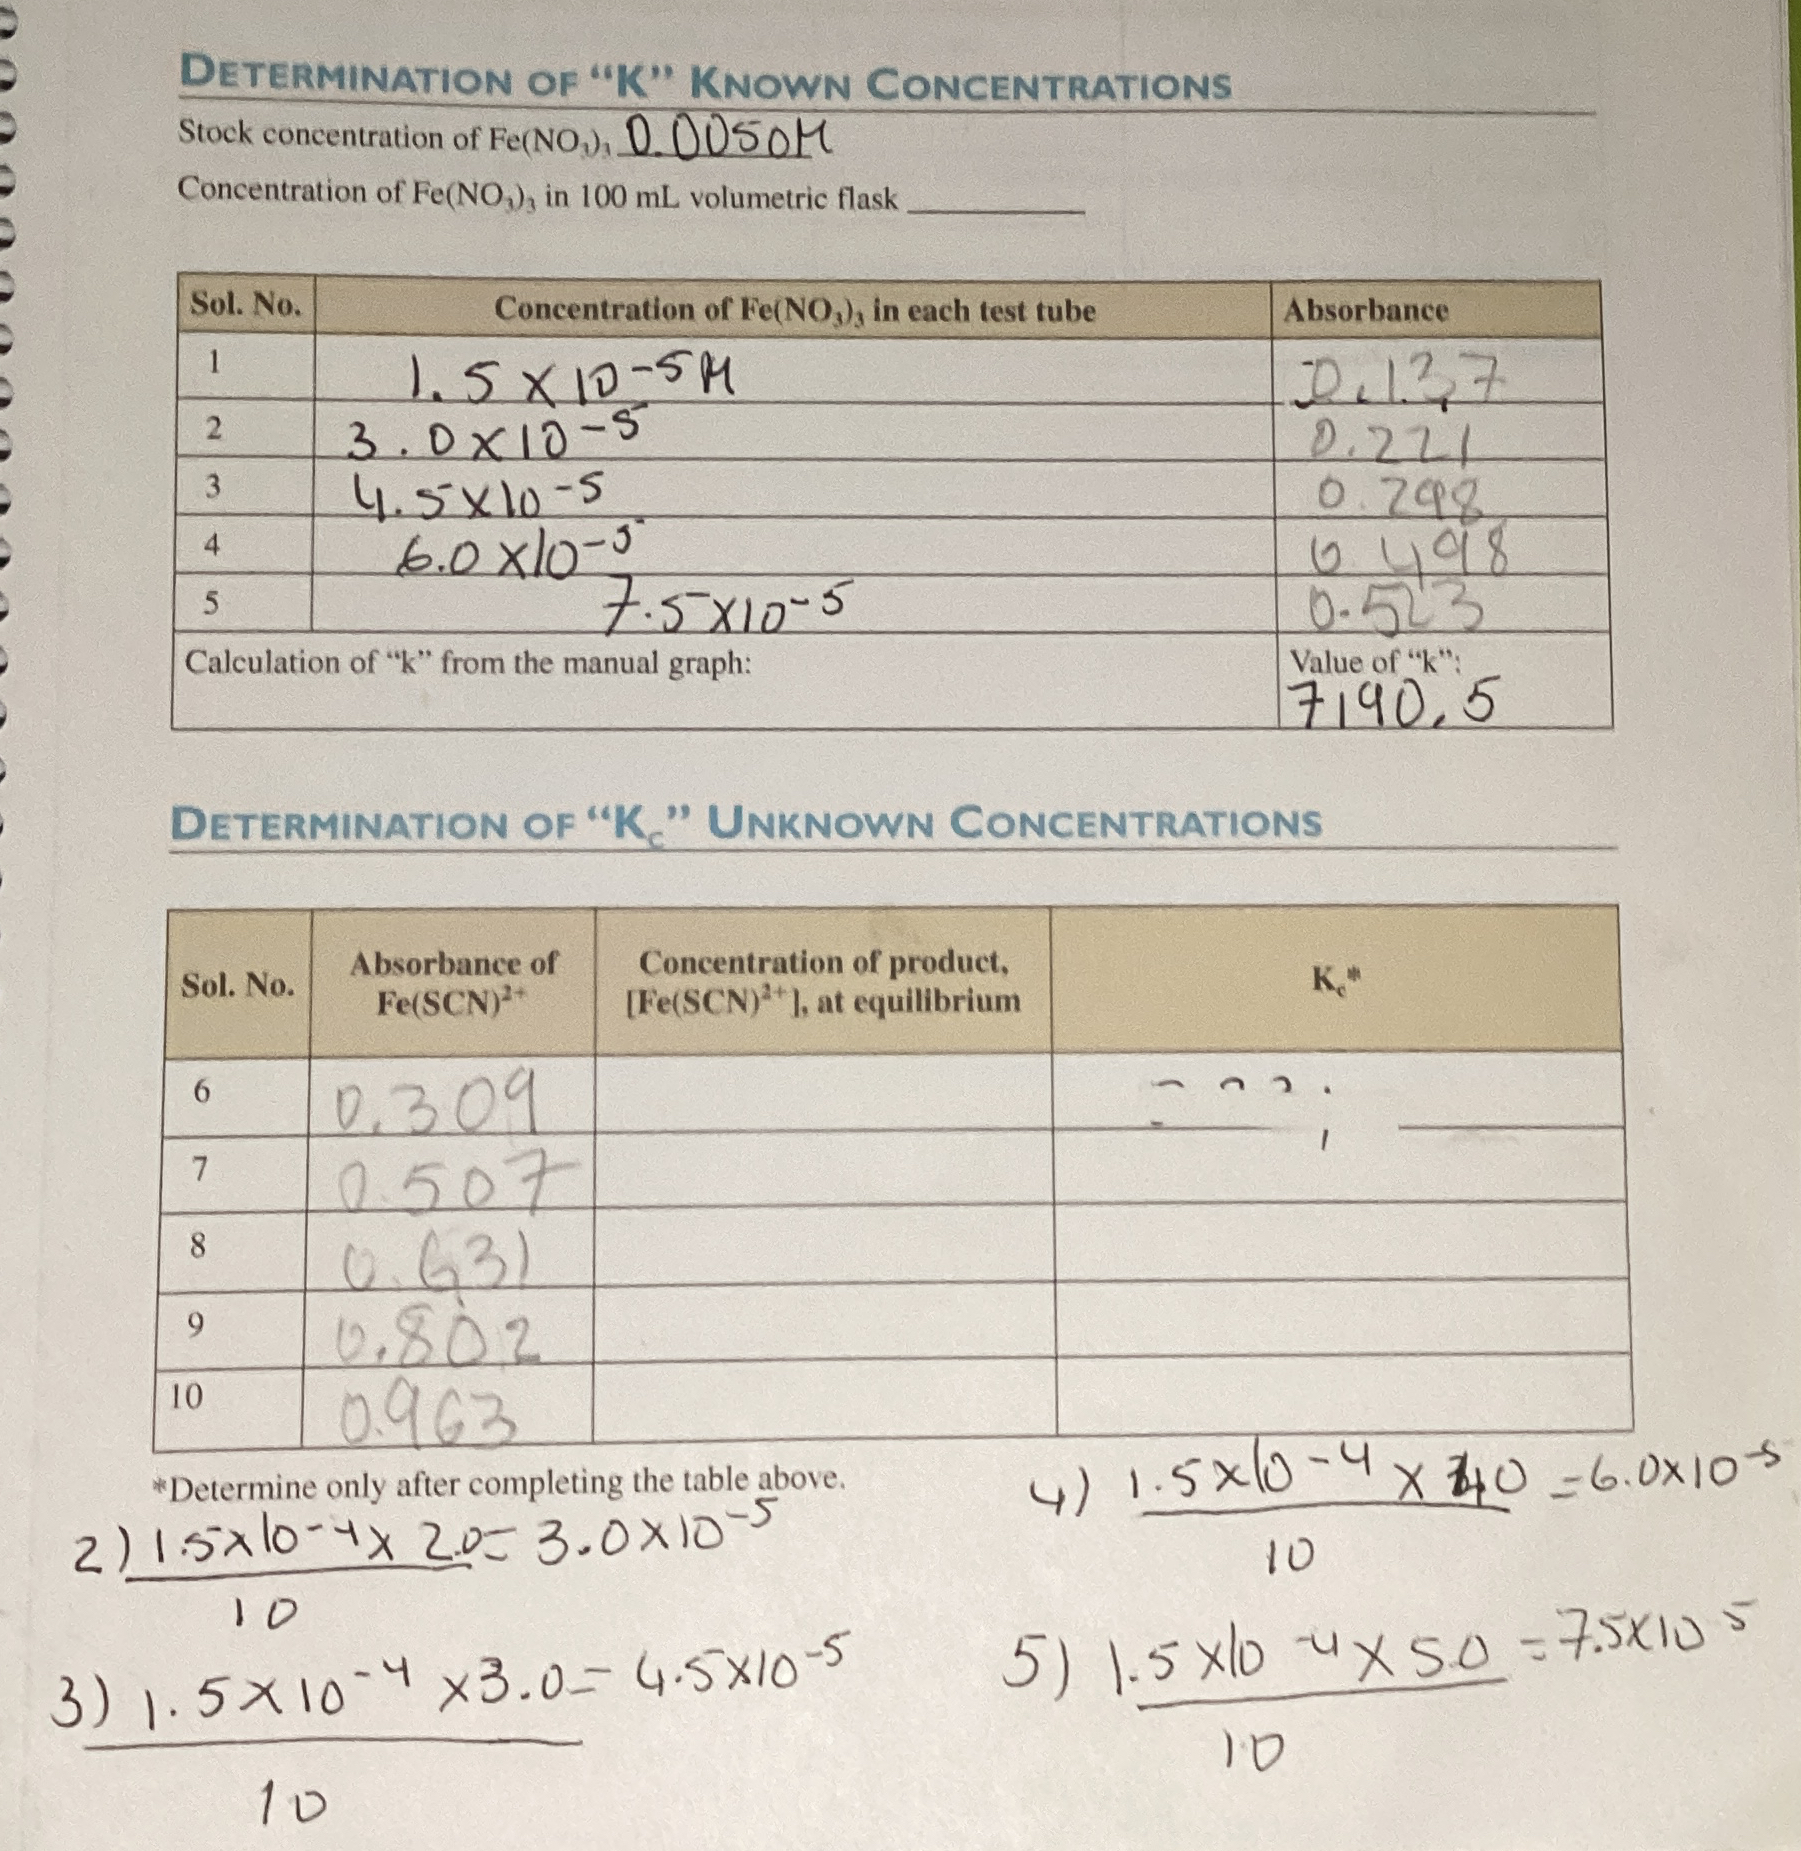 DETERMINATION OF “K” KNOWN CONCENTRATIONS
Stock concentration of Fe(NO₃)₃ 0.0050M
Concentration of Fe(NO₃)₃ in 100 mL volumetric flask
Sol. No. Concentration of Fe(NO₃)₃ in each test tube Absorbance
1 1.5 x 10-5 M 0.137
2 3.0 x 10-5 0.221
3 4.5 x 10-5 0.298
4 6.0 x 10-5 0.498
5 7.5 x 10-5 0.523
Calculation of “k” from the manual graph: Value of “k”:
7190.5
DETERMINATION OF “Kc” UNKNOWN CONCENTRATIONS
Sol. No. Absorbance of Fe(SCN)²⁺ Concentration of product, [Fe(SCN)²⁺], at equilibrium Kc*
6 0.309
7 0.507
8 0.631
9 0.802
10 0.963
*Determine only after completing the table above.
2) 1.5x10-4 x 2.0 = 3.0x10-5
10
3) 1.5 x 10-4 x 3.0 = 4.5x10-5
10
4) 1.5x10-4 x 40 = 6.0x10-5
10
5) 1.5 x10-4 x 5.0 = 7.5x10 5
10